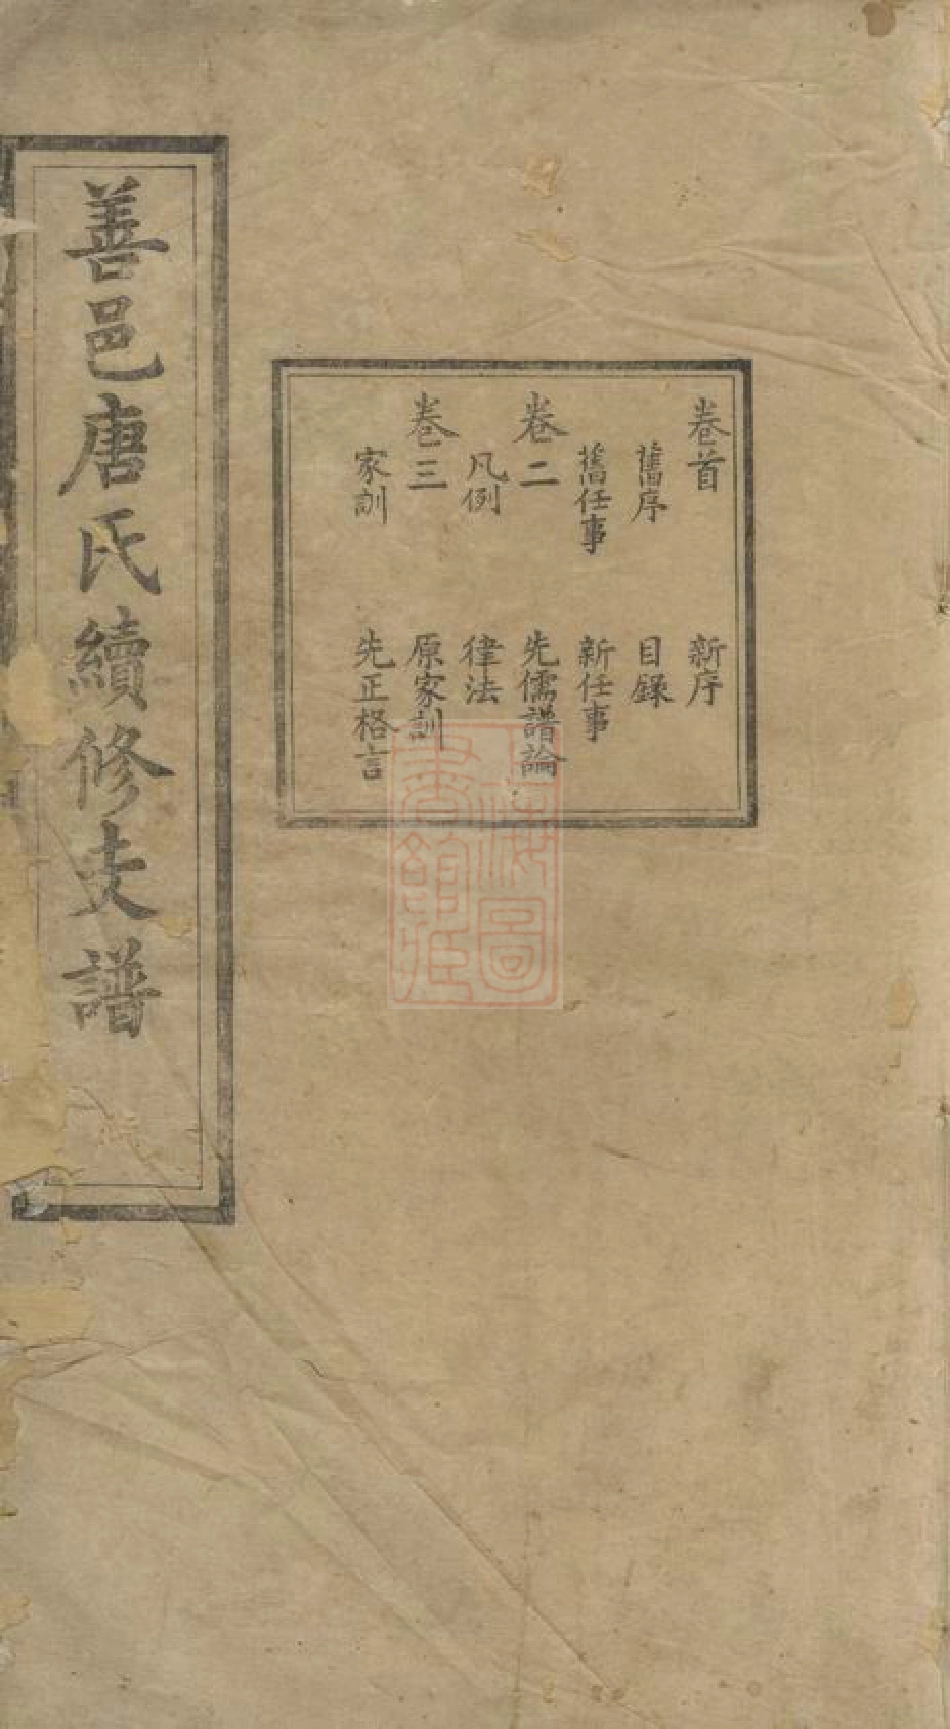 善邑唐氏續修支譜
卷首 新序
舊序 目錄
舊任事 新任事
卷二 先儒譜論
凡例 律法
卷三 原家訓
家訓 先正格言
上海圖書館藏